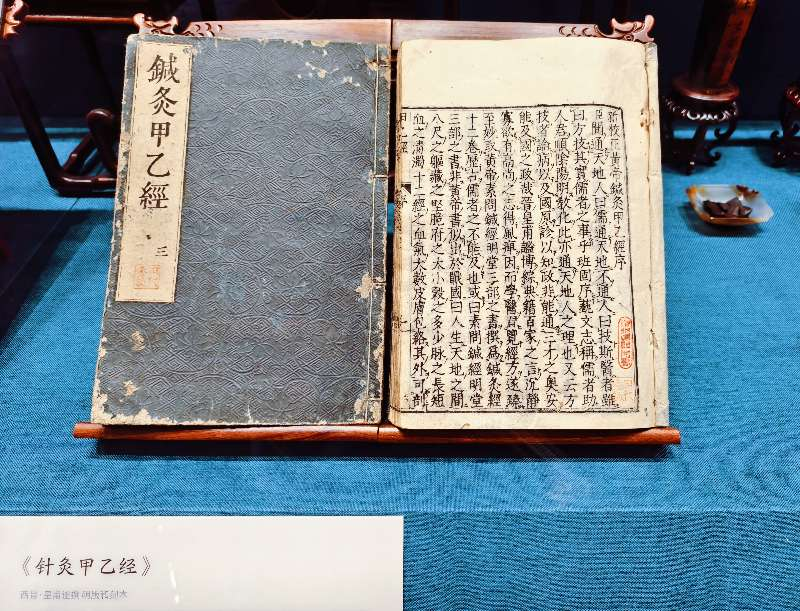 鍼灸甲乙經
三
新校正黃帝鍼灸甲乙經序
臣聞通天地人曰儒通天地不通人曰技斯醫者雖
曰方技其實儒者之事乎班固序藝文志稱儒者助
人君順陰陽明教化此亦通天地人之理也又云方
技者論病以及國原診以知政非能通三才之奧安
能及國之政哉晉皇甫謐博綜典籍百家之言沉靜
寡欲有高尚之志得風痺因而學醫習覽經方遂臻
至妙取黃帝素問鍼經明堂三部之書撰爲鍼灸經
十二卷歷古儒者之不能及也或曰素問鍼經明堂
三部之書非黃帝書似出於戰國曰人生天地之間
八尺之軀藏之堅脆府之大小穀之多少脉之長短
血之清濁十二經之血氣大數皮膚包絡其外可剖
《针灸甲乙经》
西晋·皇甫谧撰